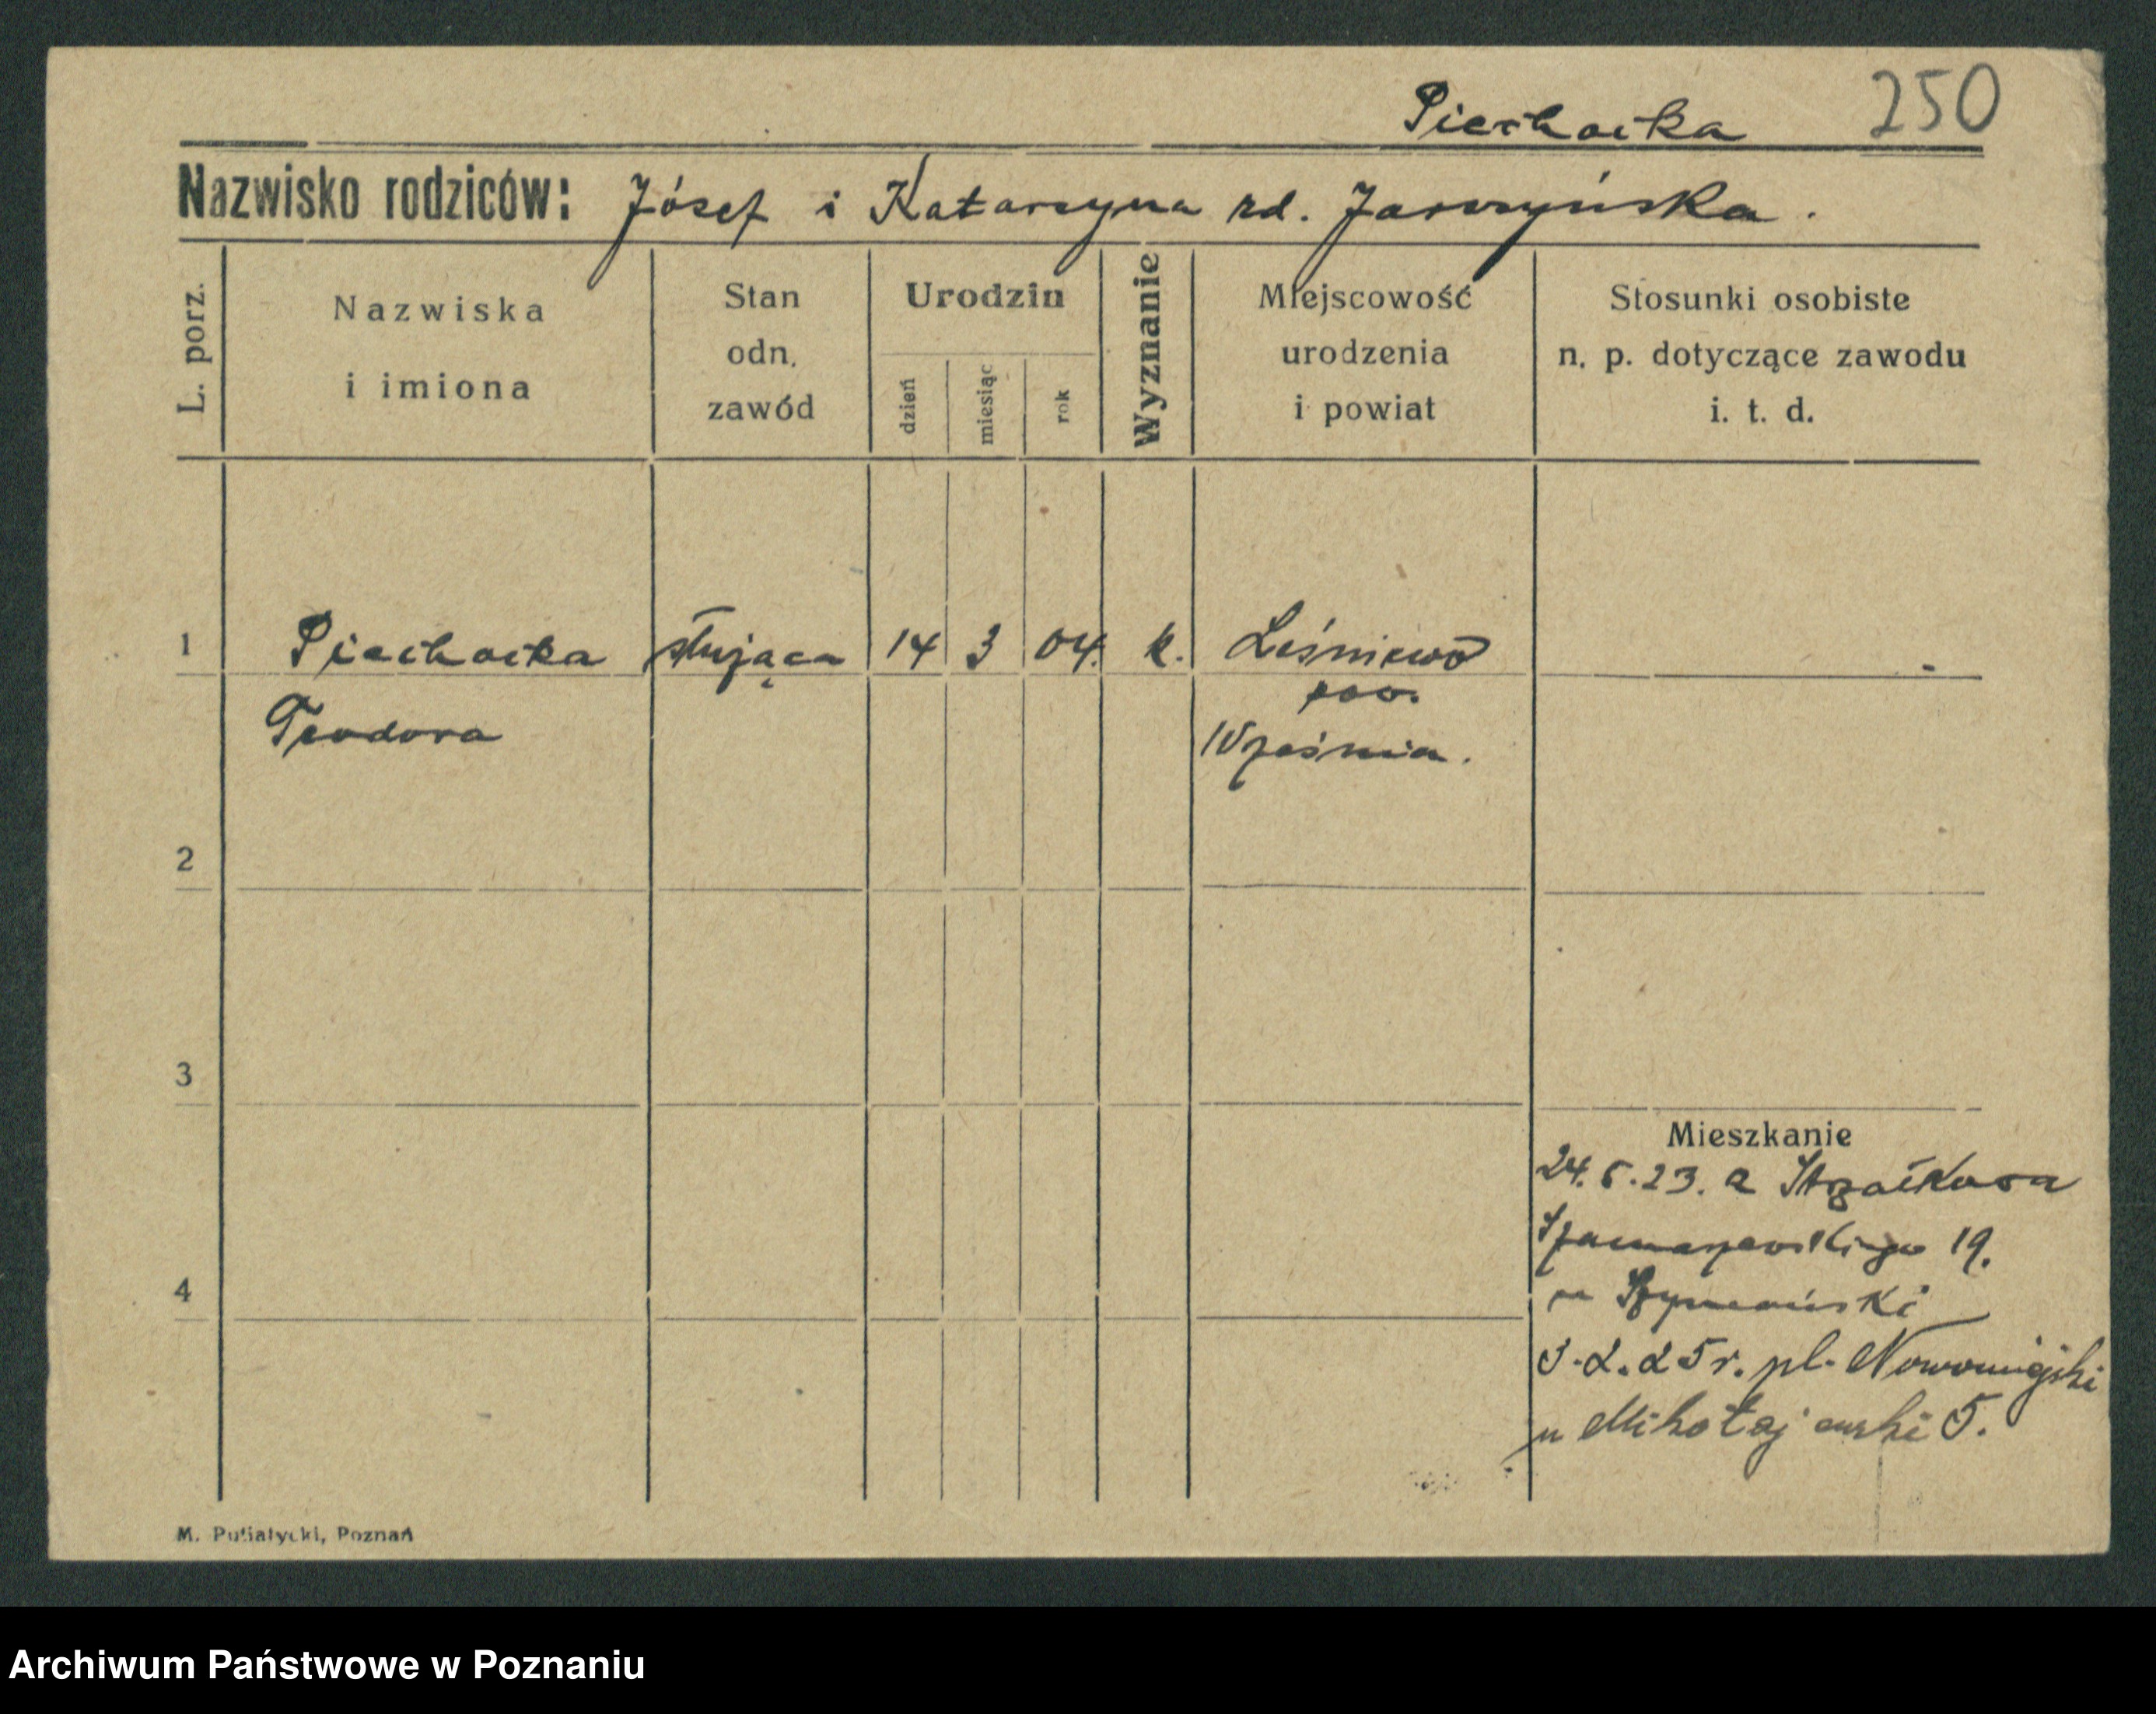 Piechocka 250
Nazwisko rodziców: Józef i Katarzyna zd. Jarczyńska.
L. porz.
Nazwiska
i imiona
Stan
odn.
zawód
Urodzin
dzień
miesiąc
rok
Wyznanie
Miejscowość
urodzenia
i powiat
Stosunki osobiste
n. p. dotyczące zawodu
i. t. d.
1 Piechocka służąca 14 3 04. k. Leśniewo
pow.
Teodora Września.
2
3
4
Mieszkanie
24. 5. 23. z Strzałkowa
Szamarzewskiego 19.
u Szymański
3. 2. 25 r. pl. Nowomiejski
u Mikołajewski 5.
M. Putiatycki, Poznań
Archiwum Państwowe w Poznaniu